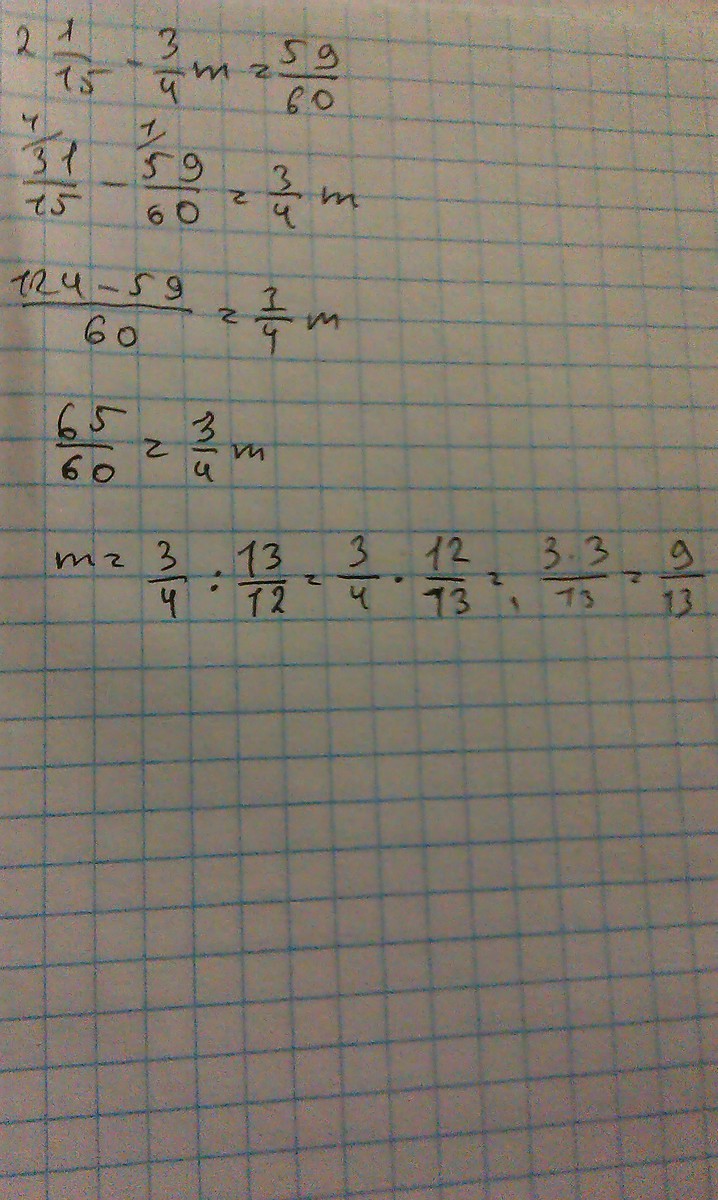 2 1/15 - 3/4 m = 59/60
4/ 31/15 - 1/ 59/60 = 3/4 m
124 - 59/60 = 3/4 m
65/60 = 3/4 m
m = 3/4 : 13/12 = 3/4 · 12/13 = 3·3/13 = 9/13